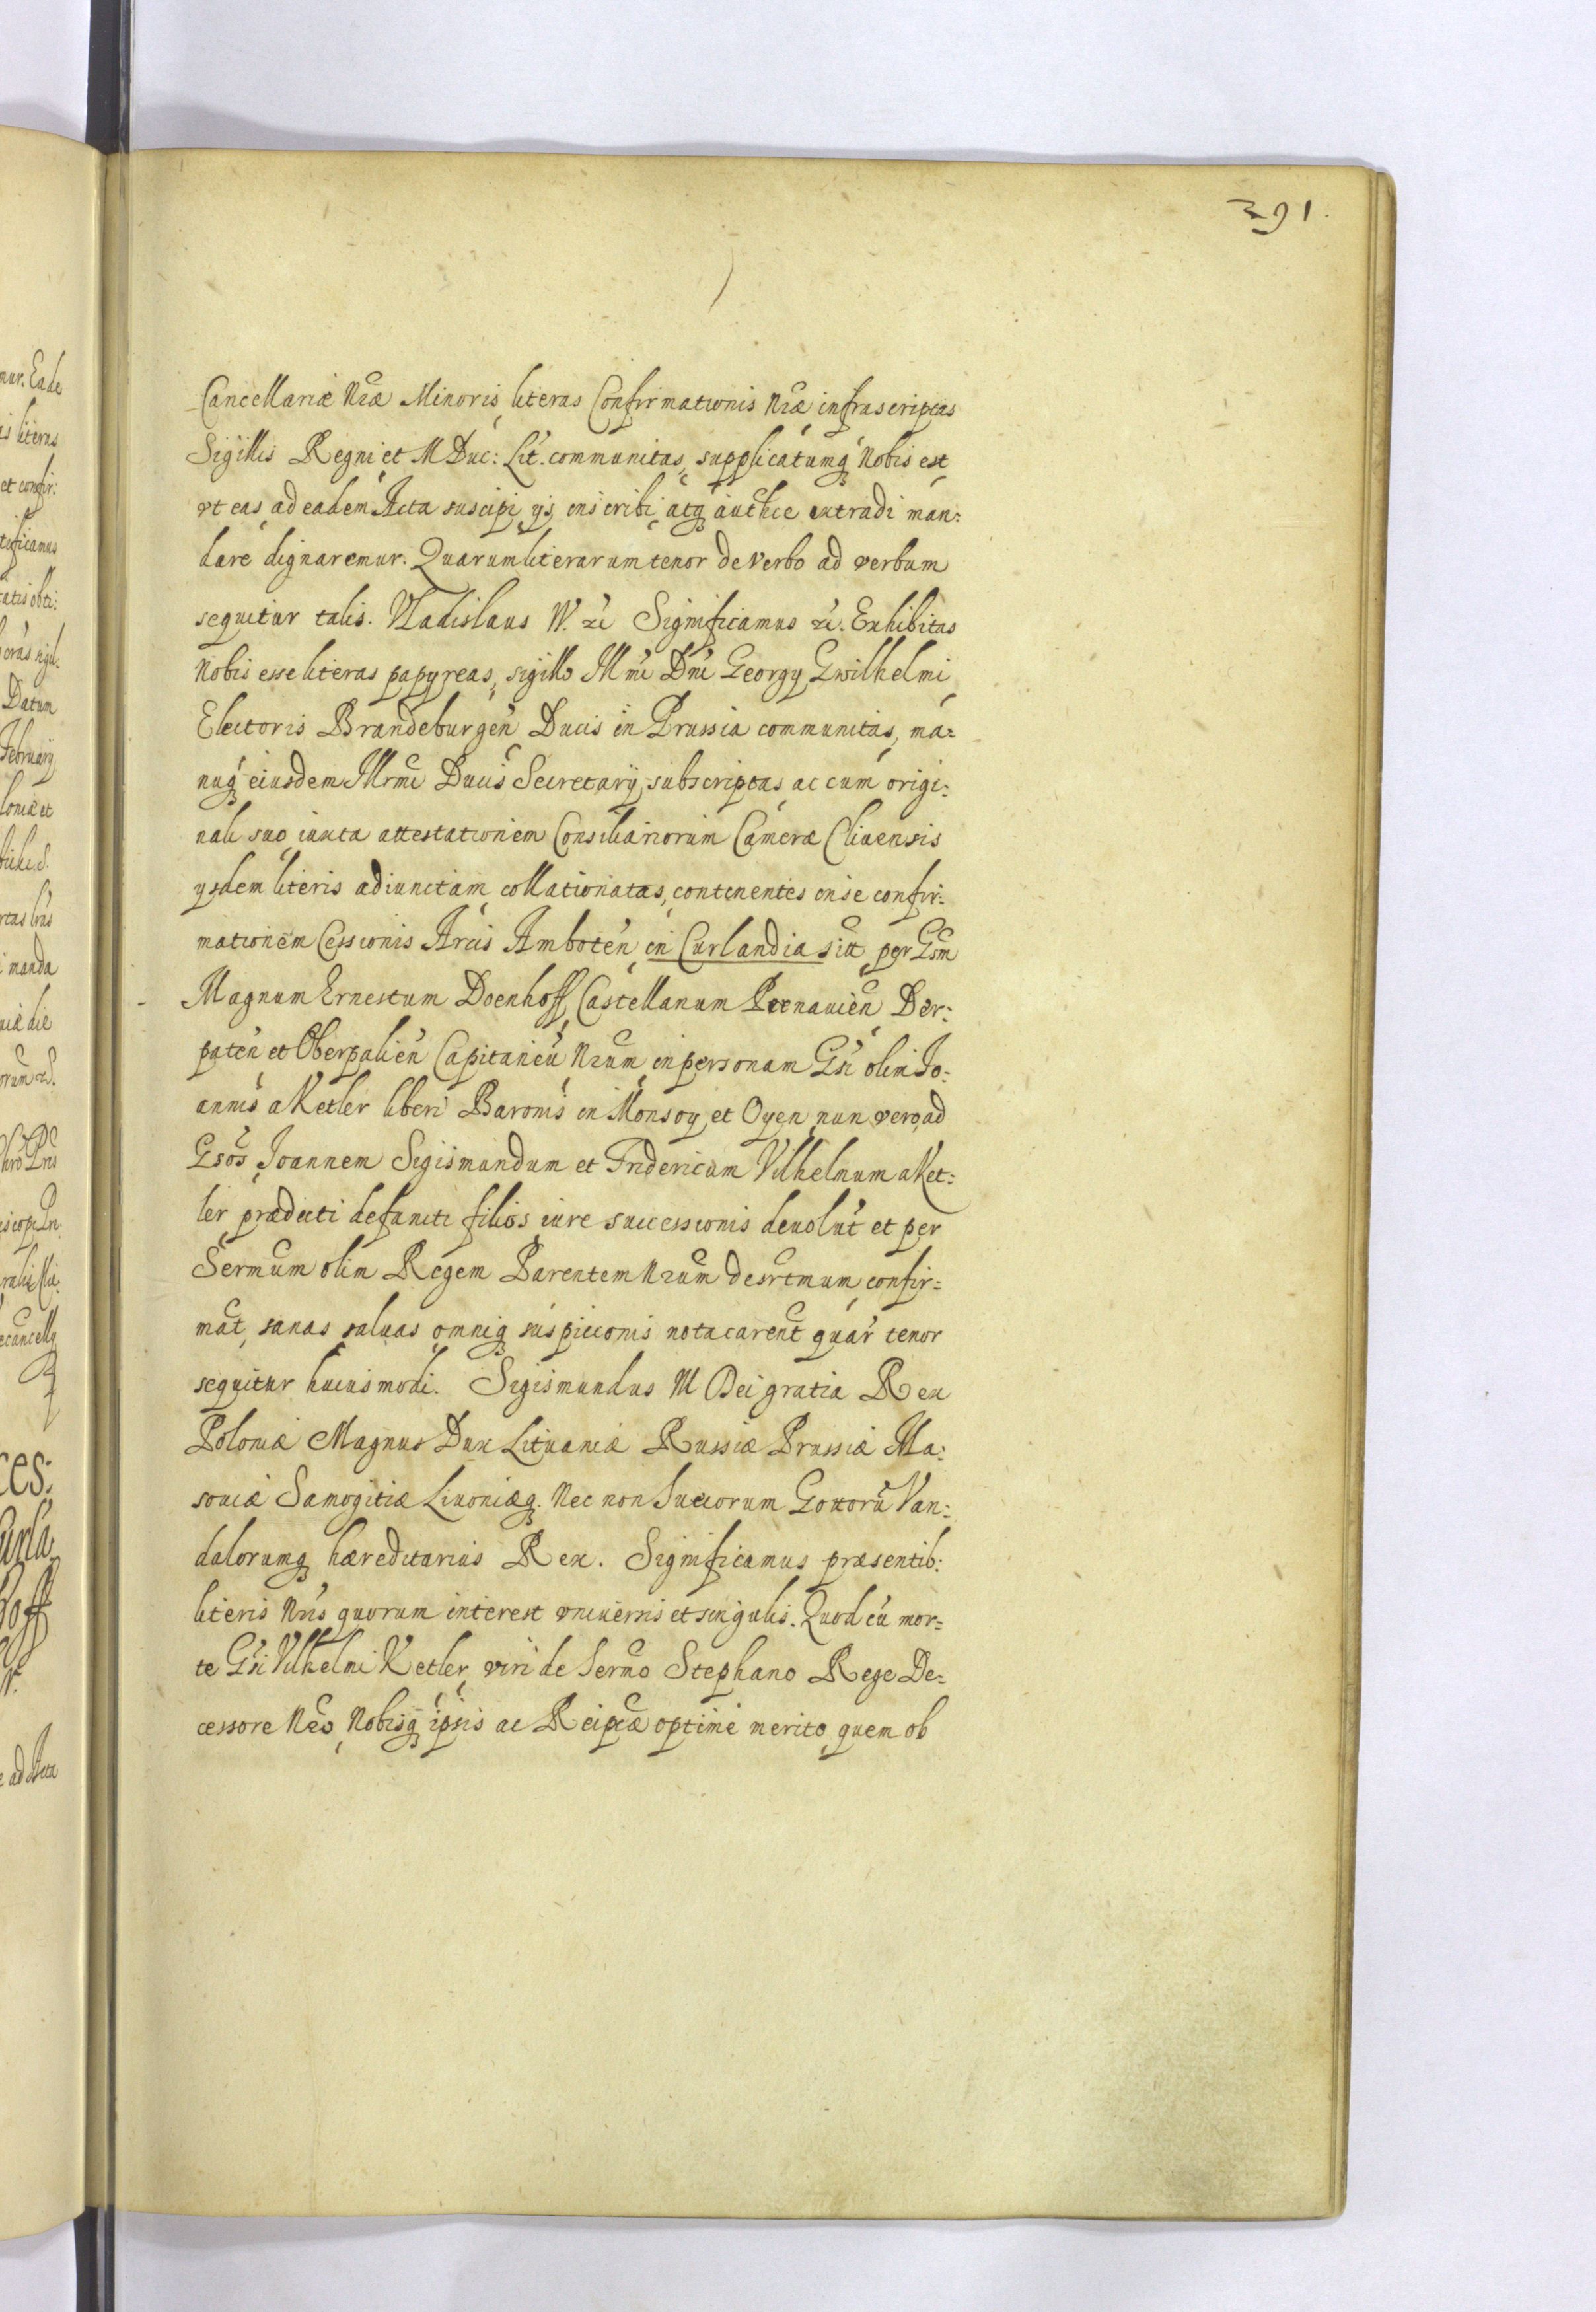 391.
Cancellariæ Nræ Minoris literas Confirmationis Nræ infrascriptas
Sigillis Regni et M Duc: Lit. communitas, supplicatumq Nobis est
vt eas ad eadem Acta suscipi ys inscribi atq authce extradi man:
dare dignaremur. Quarum literarum tenor de verbo ad verbum
sequitur talis. Vladislaus IV. &c Significamus &c. Exhibitas
Nobis esse literas papyreas, sigillo Illmi Dni Georgy Gwilhelmi
Electoris Brandeburgen Ducis in Prussia communitas, ma:
nuq eiusdem Illrmi Ducis Secretarij subscriptas ac cum origi:
nali suo iuxta attestationem Consiliariorum Cameræ Cliuensis
ysdem literis adiunctam collationatas, continentes in se confir:
mationem Cessionis Arcis Amboten in Curlandia sitt per Gsm
Magnum Ernestum Doenhoff Castellanum Pernauien Der:
paten et Oberpalien Capitaneu Nrum in personam Gsi olim Io:
annis a Ketler liberi Baronis in Monsoy et Oyen nun vero ad
Gsos Ioannem Sigismundum et Fridericum Vilhelmum a Ket:
ler prædicti defuncti filios iure successionis deuolut et per
Sermum olim Regem Parentem Nrum desrtmum confir:
mat, sanas saluas omniq suspicionis nota carent quar tenor
sequitur huiusmodi. Sigismundus III Dei gratia Rex
Poloniæ Magnus Dux Lituaniæ Russiæ Prussiæ Ma:
souiæ Samogitiæ Liuoniæq. Nec non Suecorum Gottoru Van:
dalorumq hæreditarius Rex. Significamus præsentib:
literis Nris quorum interest vniuersis et singulis. Quod cu mor:
te Gsi Vilhelmi Ketler viri de Sermo Stephano Rege De:
cessore Nro, Nobisq ipsis ac Reipcæ optime merito quem ob